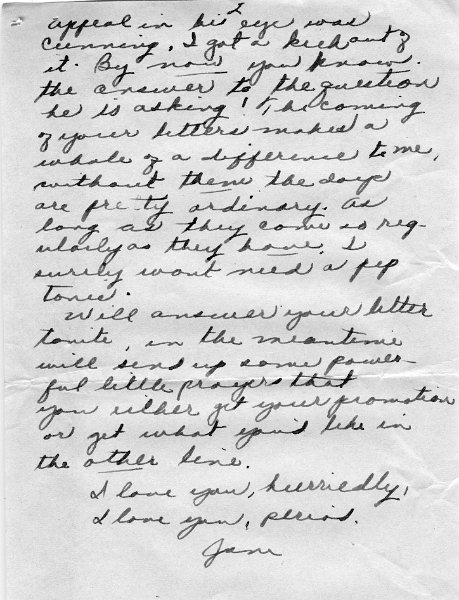 appeal in his eye was
cunning. I got a kick out of
it. By now you know
the answer to the question
he is asking! The coming
of your letters makes a
whole of a difference to me,
without them the days
are pretty ordinary. As
long as they come as reg-
ularly as they have, I
surely wont need a pep
tonic.
Will answer your letter
tonite, in the meantime
will send up some power-
ful little prayers that
you either get your promotion
or get what you'd like in
the other line.
I love you, hurriedly,
I love you, period.
Jane